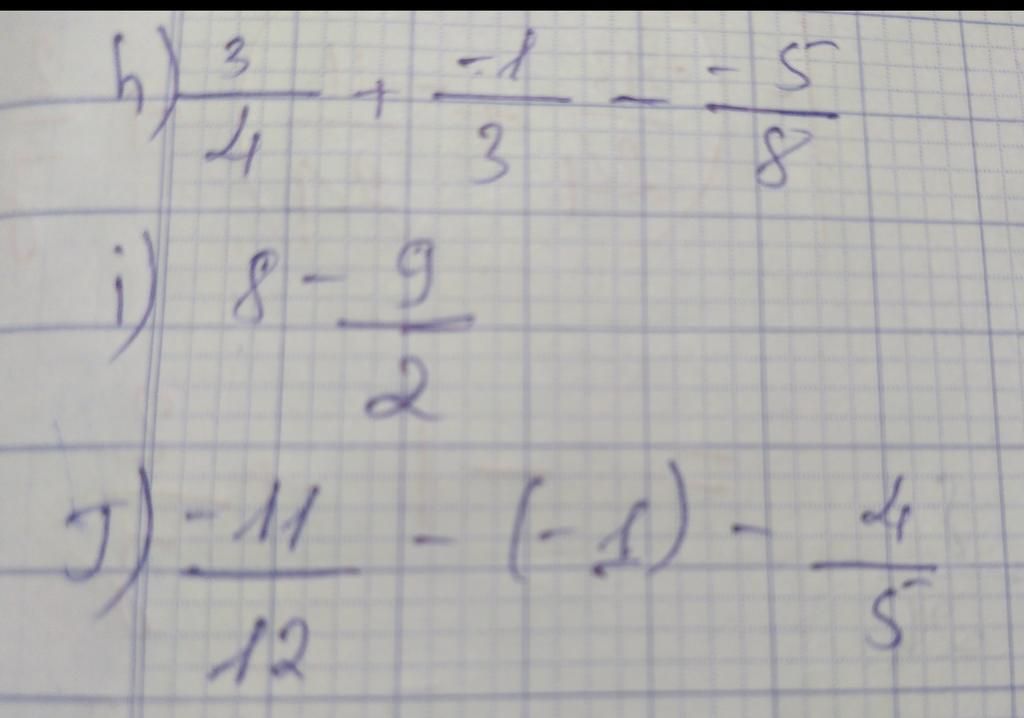 h) 3/4 + -1/3 - -5/8
i) 8 - 9/2
J) -11/12 - (-1) - 4/5